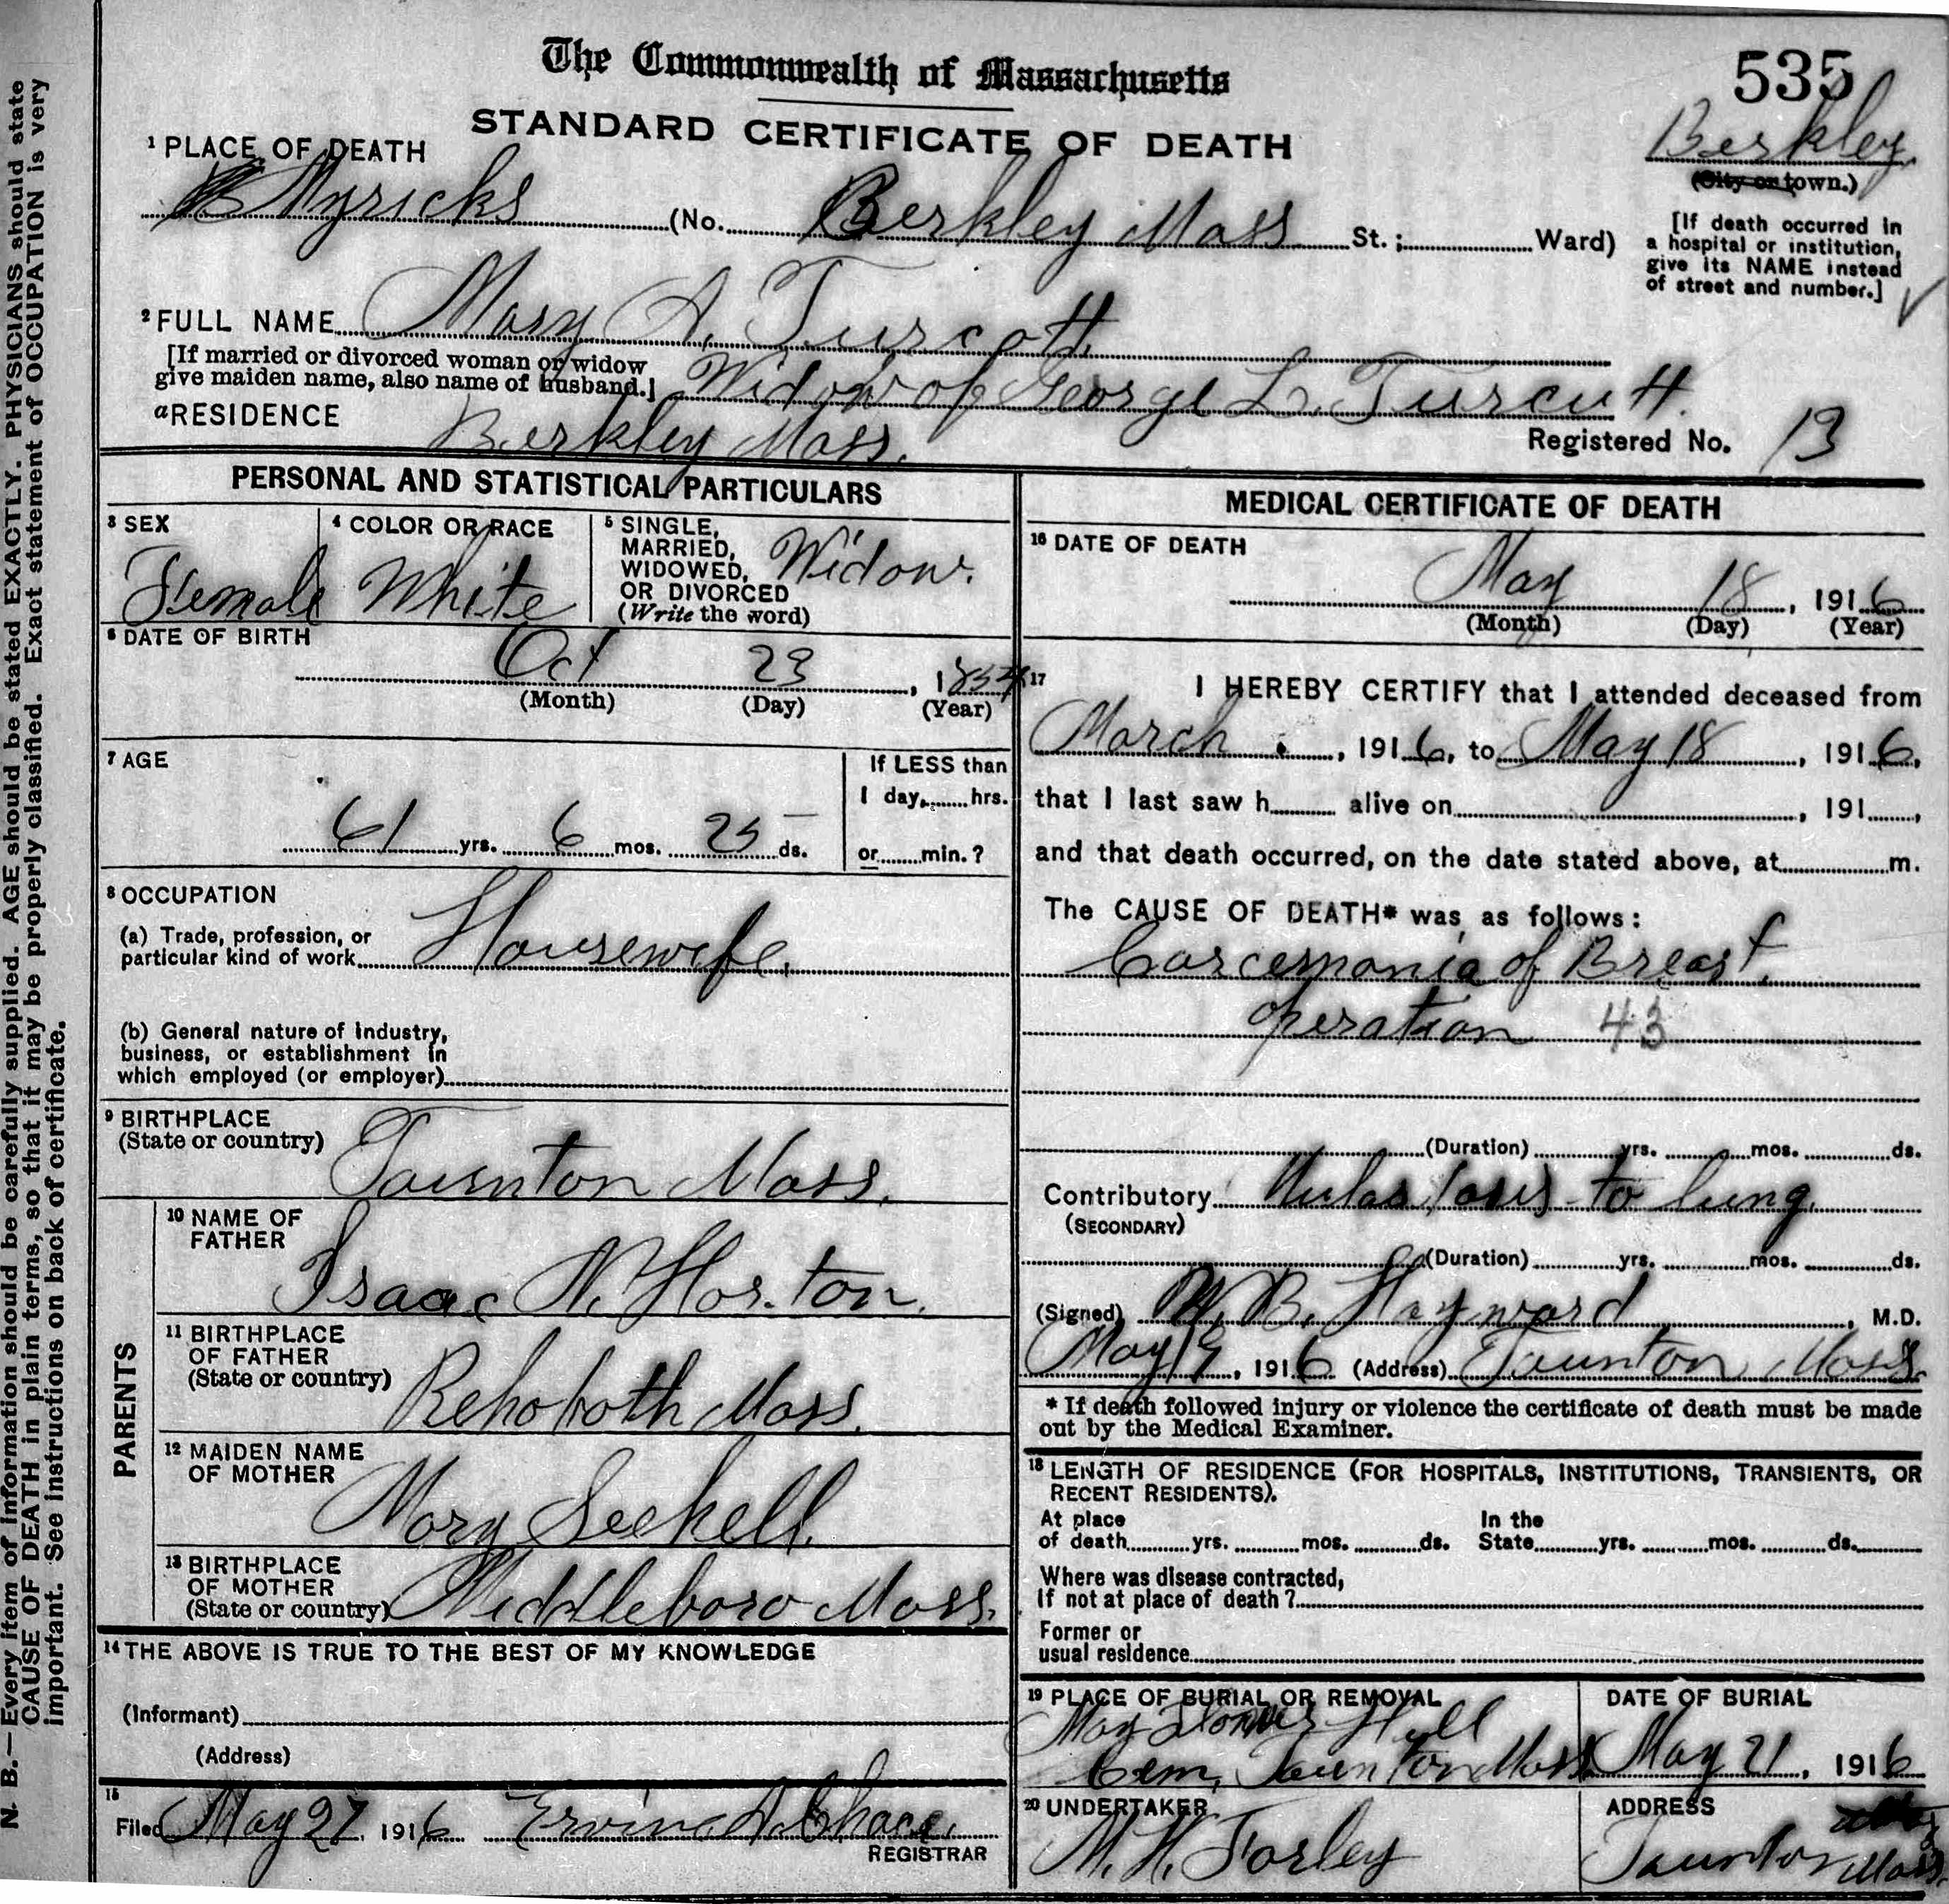 The Commonwealth of Massachusetts
535
STANDARD CERTIFICATE OF DEATH
Berkley
(City or town.)
1 PLACE OF DEATH
Myricks (No. Berkley Mass St.; Ward)
[If death occurred in
a hospital or institution,
give its NAME instead
of street and number.]
2 FULL NAME Mary A. Turcott
[If married or divorced woman or widow
give maiden name, also name of husband.] Widow of George L. Turcutt.
a RESIDENCE Berkley Mass.
Registered No. 13
PERSONAL AND STATISTICAL PARTICULARS
3 SEX
Female
4 COLOR OR RACE
White
5 SINGLE,
MARRIED,
WIDOWED,
OR DIVORCED
(Write the word)
Widow.
6 DATE OF BIRTH
Oct 23, 1854
(Month) (Day) (Year)
7 AGE
61 yrs. 6 mos. 25 ds.
If LESS than
1 day, hrs.
or min.?
8 OCCUPATION
(a) Trade, profession, or
particular kind of work Housewife.
(b) General nature of industry,
business, or establishment in
which employed (or employer)
9 BIRTHPLACE
(State or country)
Taunton Mass.
PARENTS
10 NAME OF
FATHER
Isaac N. Horton.
11 BIRTHPLACE
OF FATHER
(State or country)
Rehoboth Mass.
12 MAIDEN NAME
OF MOTHER
Mary Seekell.
13 BIRTHPLACE
OF MOTHER
(State or country)
Middleboro Mass.
14 THE ABOVE IS TRUE TO THE BEST OF MY KNOWLEDGE
(Informant)
(Address)
15
Filed May 27, 1916 Ervin A. Chace.
REGISTRAR
MEDICAL CERTIFICATE OF DEATH
16 DATE OF DEATH
May 18, 1916
(Month) (Day) (Year)
17 I HEREBY CERTIFY that I attended deceased from
March, 1916, to May 18, 1916,
that I last saw h alive on , 191 ,
and that death occurred, on the date stated above, at m.
The CAUSE OF DEATH* was as follows:
Carcemonia of Breast.
operation 43
(Duration) yrs. mos. ds.
Contributory to lung.
(SECONDARY)
(Duration) yrs. mos. ds.
(Signed) B. Hayward, M.D.
May 19, 1916 (Address) Taunton Mass.
* If death followed injury or violence the certificate of death must be made
out by the Medical Examiner.
18 LENGTH OF RESIDENCE (FOR HOSPITALS, INSTITUTIONS, TRANSIENTS, OR
RECENT RESIDENTS).
At place
of death yrs. mos. ds.
In the
State yrs. mos. ds.
Where was disease contracted,
if not at place of death?
Former or
usual residence
19 PLACE OF BURIAL OR REMOVAL
May Hill
Cem. Taunton Mass
DATE OF BURIAL
May 21, 1916
20 UNDERTAKER
ADDRESS
Taunton Mass.
N. B.—Every item of information should be carefully supplied. AGE should be stated EXACTLY. PHYSICIANS should state
CAUSE OF DEATH in plain terms, so that it may be properly classified. Exact statement of OCCUPATION is very
important. See instructions on back of certificate.